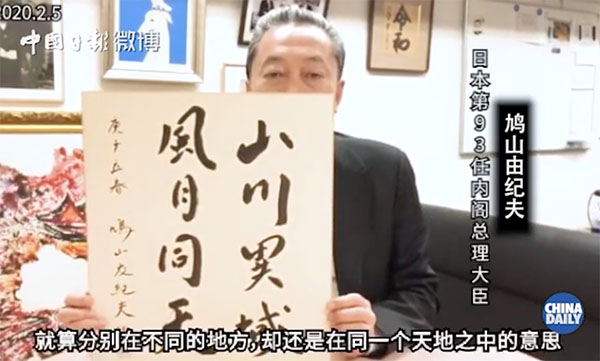 2020.2.5
中國日報微博
令和
日本第93任内阁总理大臣
鸠山由纪夫
山川異域
風月同天
庚子立春 鳩山友紀夫
CHINA
DAILY
就算分别在不同的地方,却还是在同一个天地之中的意思